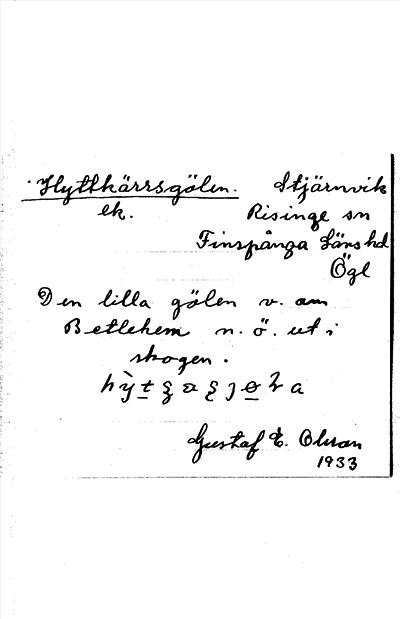 Hyttkärrsgölen. Stjärnvik
ek. Risinge sn
Finspånga Läns hd
Ögl
Den lilla gölen v. om
Betlehem n. ö. ut i
skogen.
Gustaf E. Olsson
1933